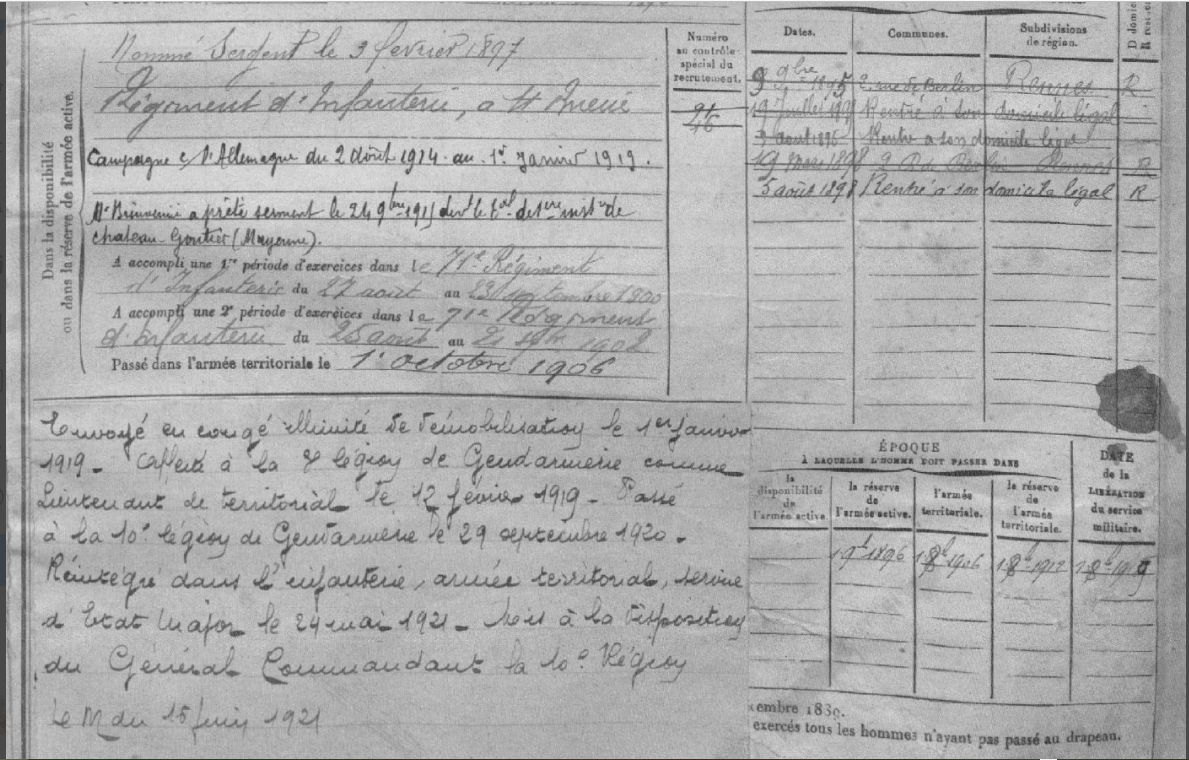 Nommé Sergent le 3 février 1897
Régiment d'Infanterie, a
Campagne c/ l'Allemagne du 2 août 1914 au 1er Janvier 1919.
Mr Bienvenu a prêté serment le 24 9bre 1915 devt le de 1ere inst ce de
chateau-Gontier (Mayenne).
A accompli une 1re période d'exercices dans le 71e Régiment
d'Infanterie du 27 août au 23 septembre 1900
A accompli une 2e période d'exercices dans le 71e Régiment
d'Infanterie du 25 août au 1902
Passé dans l'armée territoriale le 1er octobre 1906
Dans la disponibilité
ou dans la réserve de l'armée active.
Numéro
au contrôle
spécial du
recrutement.
Envoyé en congé illimité de démobilisation le 1er janvier
1919 - affecté à la légion de Gendarmerie comme
Lieutenant de territorial le 12 février 1919 - Passé
à la 10e légion de Gendarmerie le 29 septembre 1920 -
Réintégré dans l'infanterie, armée territorial, service
d'Etat Major le 24 mai 1921 - Mis à la disposition
du Général Commandant la 10e Région
Le M du 15 juin 1921
Dates. Communes. Subdivisions
de région.
D domici
R résiden
9bre 1895 2 rue de Berlin Rennes R
19 juillet Rentré à son domicile légal
3 août 1896 Rentré a son domicile légal
19 mars 1898 Rennes R
5 août 1898 Rentré à son domicile légal R
ÉPOQUE
À LAQUELLE L'HOMME DOIT PASSER DANS
la
disponibilité
de
l'armée active
la réserve
de
l'armée active.
l'armée
territoriale.
la réserve
de
l'armée
territoriale.
DATE
de la
LIBÉRATION
du service
militaire.
1896 1906 1912 1919
embre 1889.
exercés tous les hommes n'ayant pas passé au drapeau.